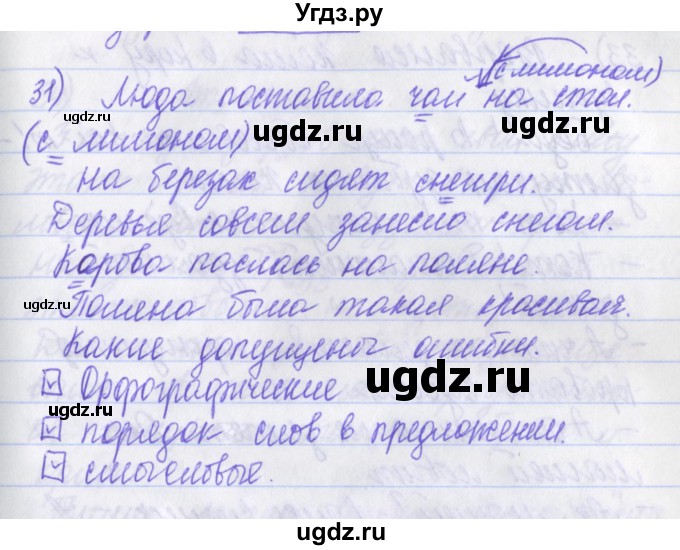 Угдз.ру
(с лимоном)
31) Люда поставила чаи на стол.
(с лимоном)
ugdz.ru
ugdz.ru
ugdz.ru
На березак сидят снегири.
Деревья совсем занесло снегом.
Корова паслась на поляне.
ugdz.ru
ugdz.ru
Поляна была такая красивая.
Какие допущены ошибки.
ugdz.ru
☑ Орфографические
ugdz.ru
☑ порядок слов в предложении.
ugdz.ru
☑ смысловые.
ugdz.ru